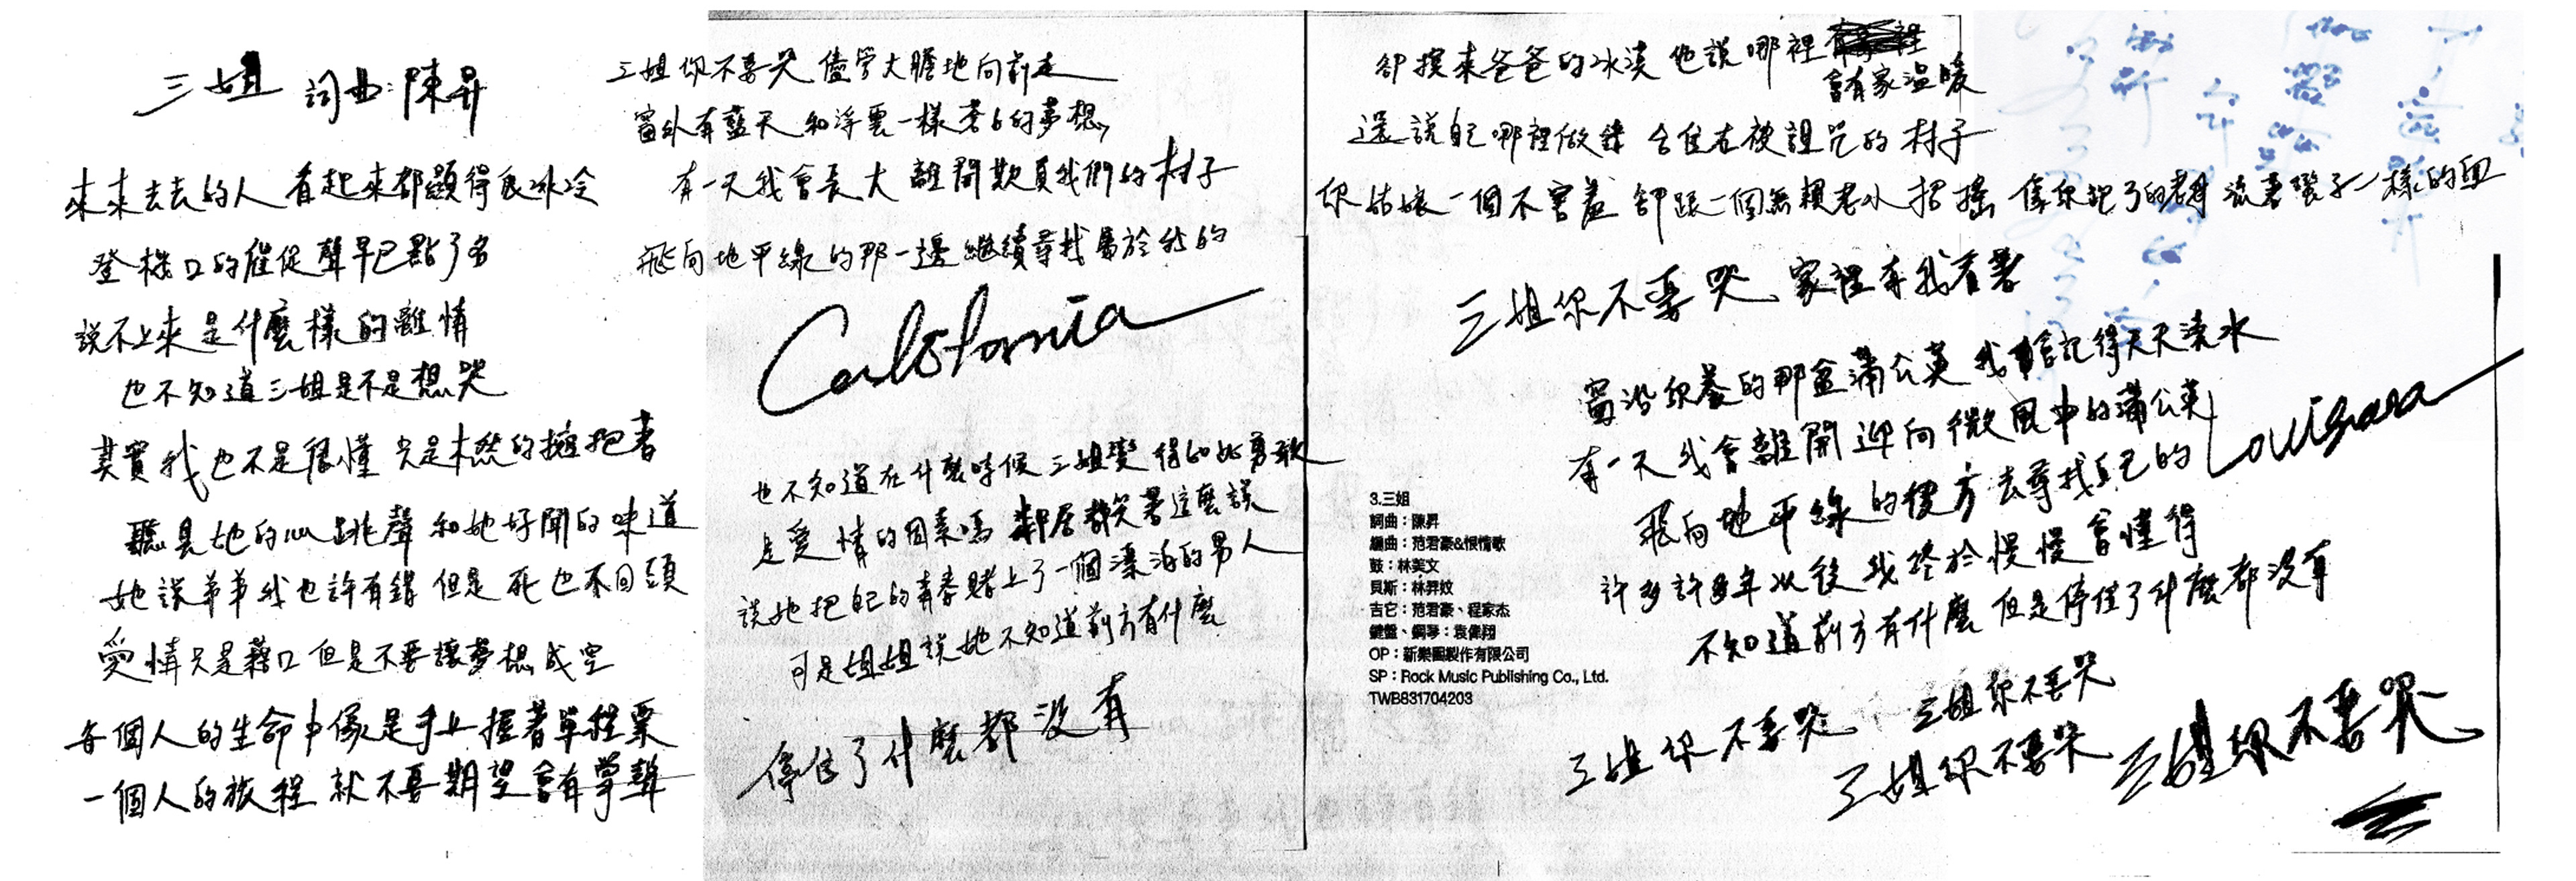 三姐 詞曲:陳昇
來來去去的人 看起來都顯得很冰冷
登機口的催促聲早已點了名
說不上來是什麼樣的離情
也不知道三姐是不是想哭
其實我也不是很懂 只是木然的擁抱著
聽見她的心跳聲 和她好聞的味道
她說弟弟我也許有錯 但是死也不回頭
愛情只是藉口 但是不要讓夢想成空
每個人的生命中像是手上握著單程票
一個人的旅程 就不要期望會有掌聲
三姐你不要哭 儘管大膽地向前走
窗外有藍天 和浮雲一樣 的夢想
有一天我會長大 離開欺負我們的村子
飛向地平線的那一邊 繼續尋找屬於我的
Califonia
也不知道在什麼時候 三姐變得如此勇敢
是愛情的因素嗎 鄰居都笑著這麼說
說她把自己的青春賭上了一個漂泊的男人
可是姐姐說她不知道前方有什麼
停住了什麼都沒有
卻換來爸爸的冰淡 他說哪裡
會有家溫暖
還說自己哪裡做錯 會住在被詛咒的村子
你姑娘一個不害羞 卻跟一個無賴老水招搖 像你 了的 流著 子一樣的血
三姐你不要哭 家裡有我看著
窗沿你養的那盆蒲公英 我會記得天天澆水
有一天我會離開 迎向微風中的蒲公英
飛向地平線的彼方 去尋找自己的 Louisiana
許多許多年以後 我終於慢慢會懂得
不知道前方有什麼 但是停住了什麼都沒有
三姐你不要哭 三姐你不要哭
三姐你不要哭 三姐你不要哭
3.三姐
詞曲：陳昇
編曲：范君豪&恨情歌
鼓：林芙文
貝斯：林羿妏
吉它：范君豪、程家杰
鍵盤、鋼琴：袁偉翔
OP：新樂園製作有限公司
SP：Rock Music Publishing Co., Ltd.
TWB831704203